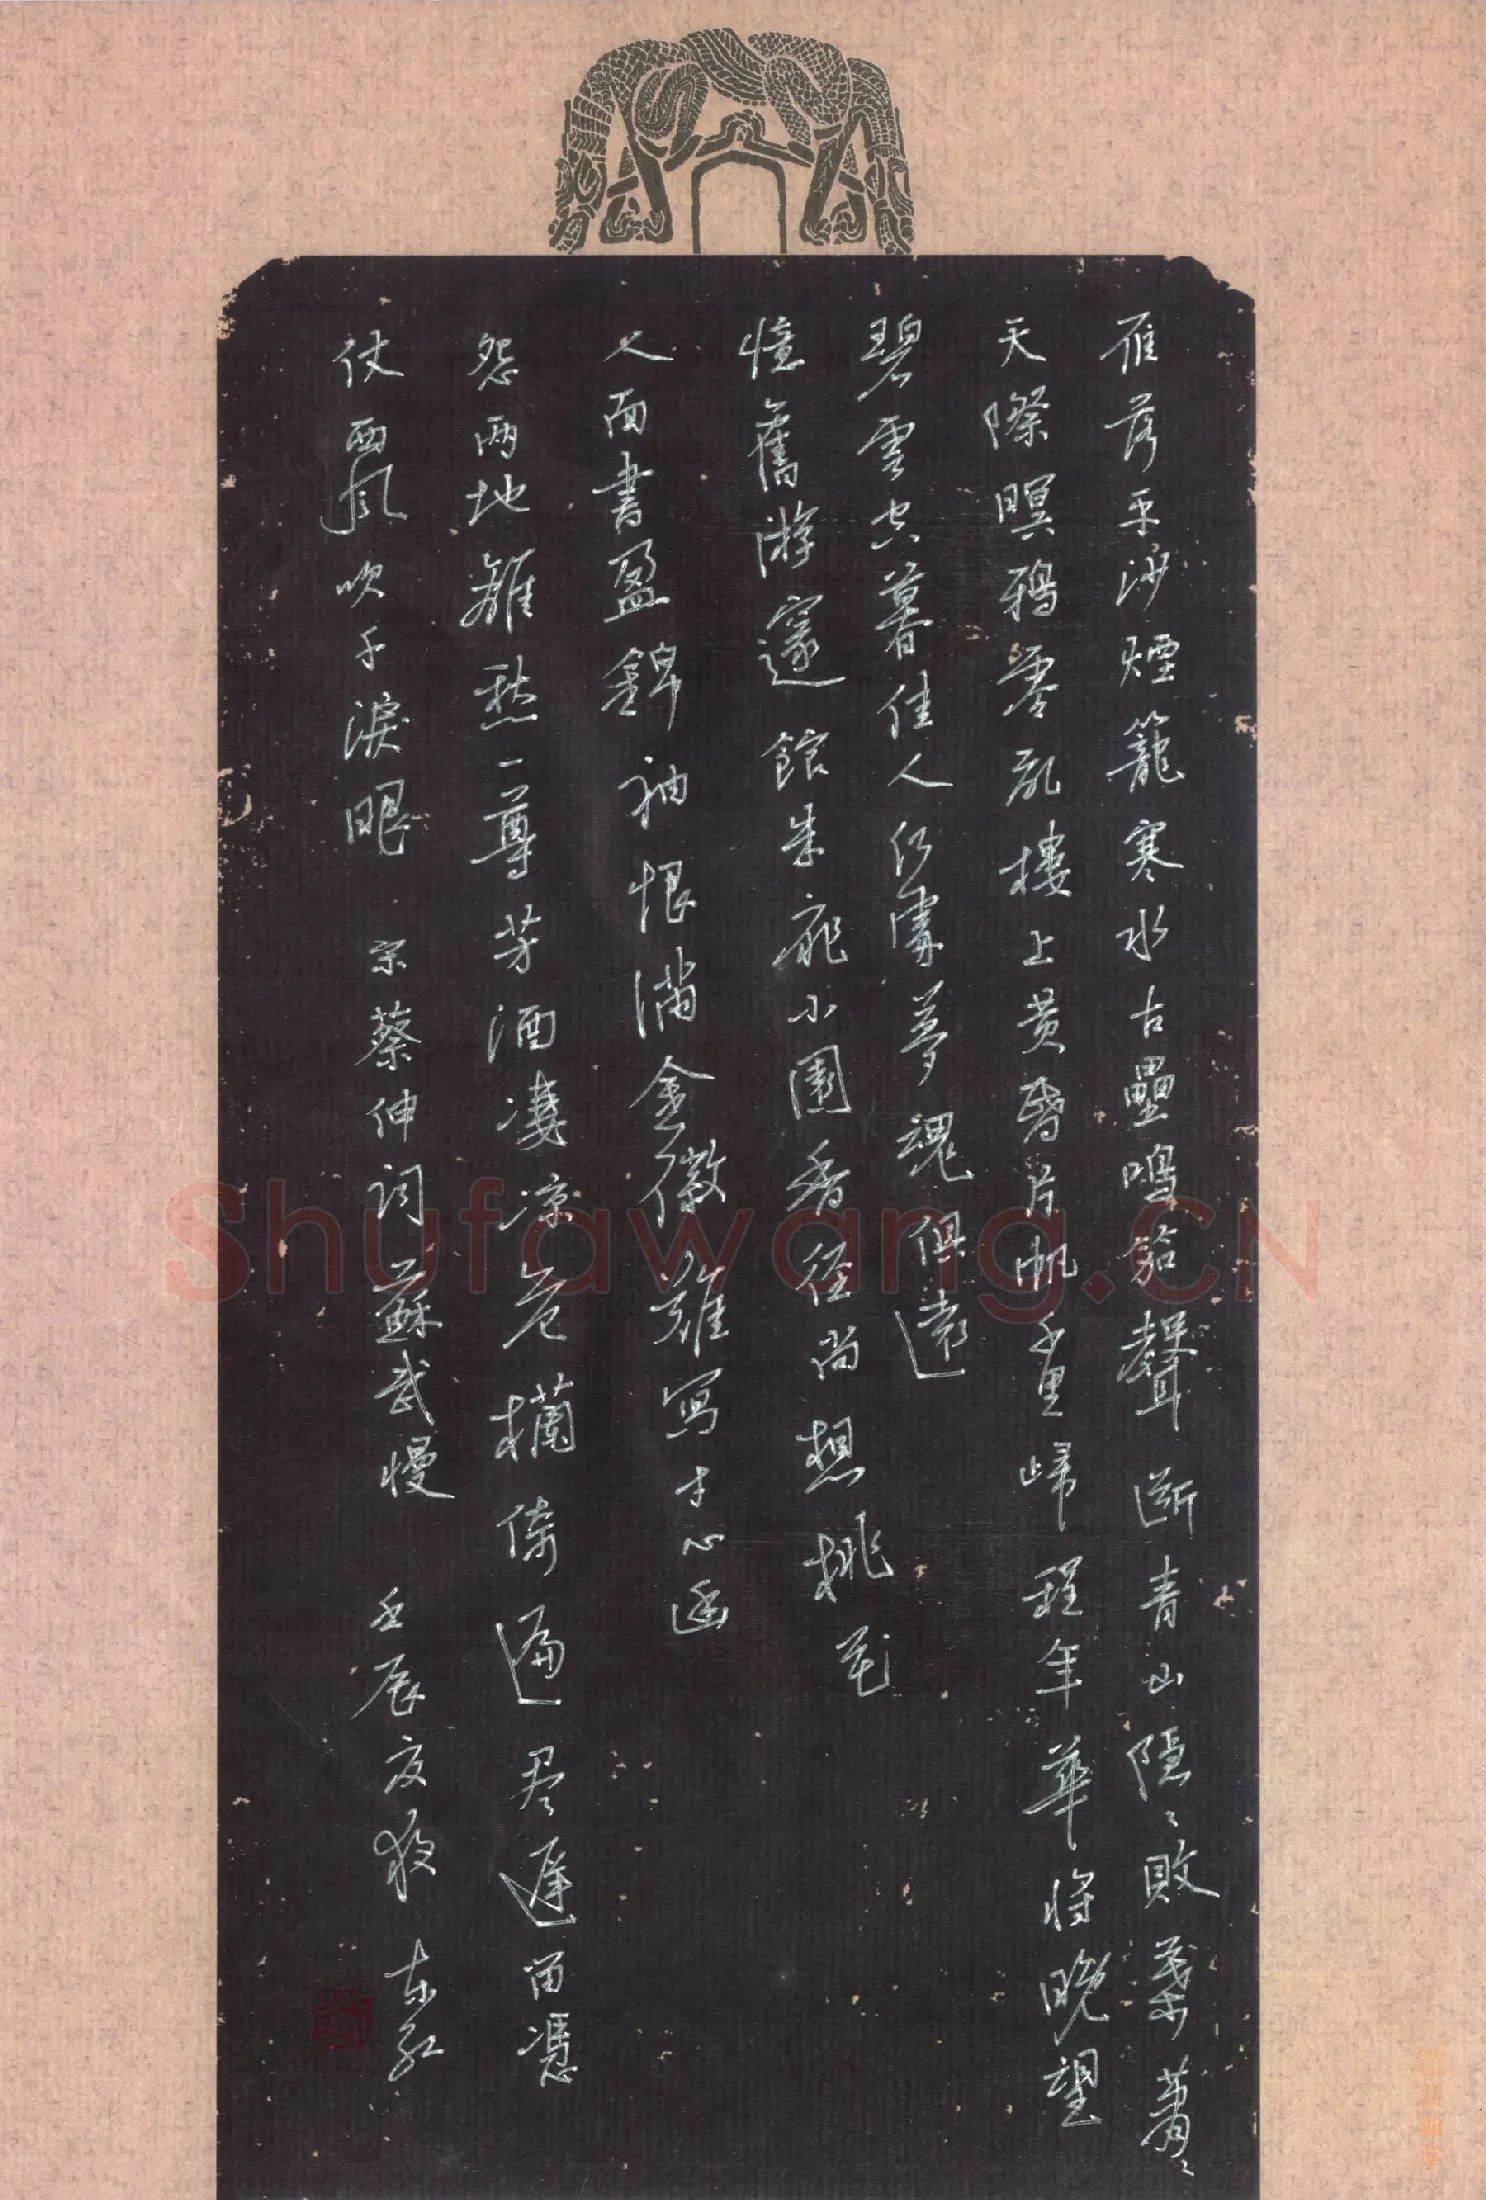 雁落平沙煙籠寒水古壘鳴笳聲斷青山隱〻敗葉蕭〻
天際暝鴉零乱樓上黃昏片帆千里歸程年華將晚望
碧雲空暮佳人何處夢魂俱遠
憶舊游邃館朱扉小園香徑尚想桃花
人面書盈錦袖恨滿金徽難写寸心幽
怨兩地離愁一尊芳酒凄涼危欄倚遍尽遲留憑
仗西風吹干淚眼 宋蔡伸詞蘇武慢 壬辰夏夜 东红
Shufawang.CN